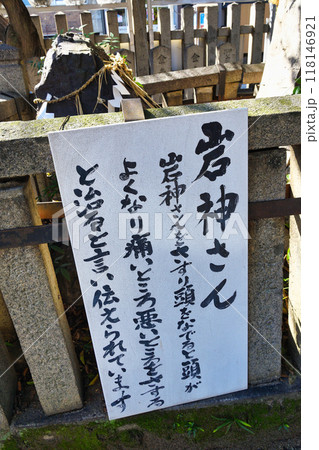 岩神さん
岩神さんをさすり頭をなでると頭が
よくなり痛いところ悪いところをさする
と治ると言い伝えられています
PIXTA
118146921